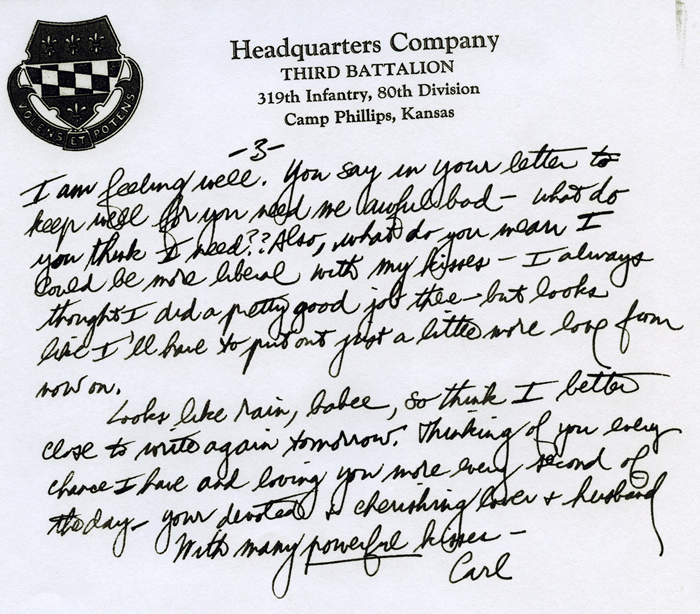 Headquarters Company
THIRD BATTALION
319th Infantry, 80th Division
Camp Phillips, Kansas
VOLENS ET POTENS
-3-
I am feeling well. You say in your letter to
keep well for you need me awful bad - what do
you think I need?? Also, what do you mean I
could be more liberal with my kisses - I always
thought I did a pretty good job thee - but looks
like I'll have to put out just a little more love from
now on.
Looks like rain, babee, so think I better
close to write again tomorrow. Thinking of you every
chance I have and loving you more every second of
the day - your devoted & cherishing lover & husband
With many powerful kisses -
Carl